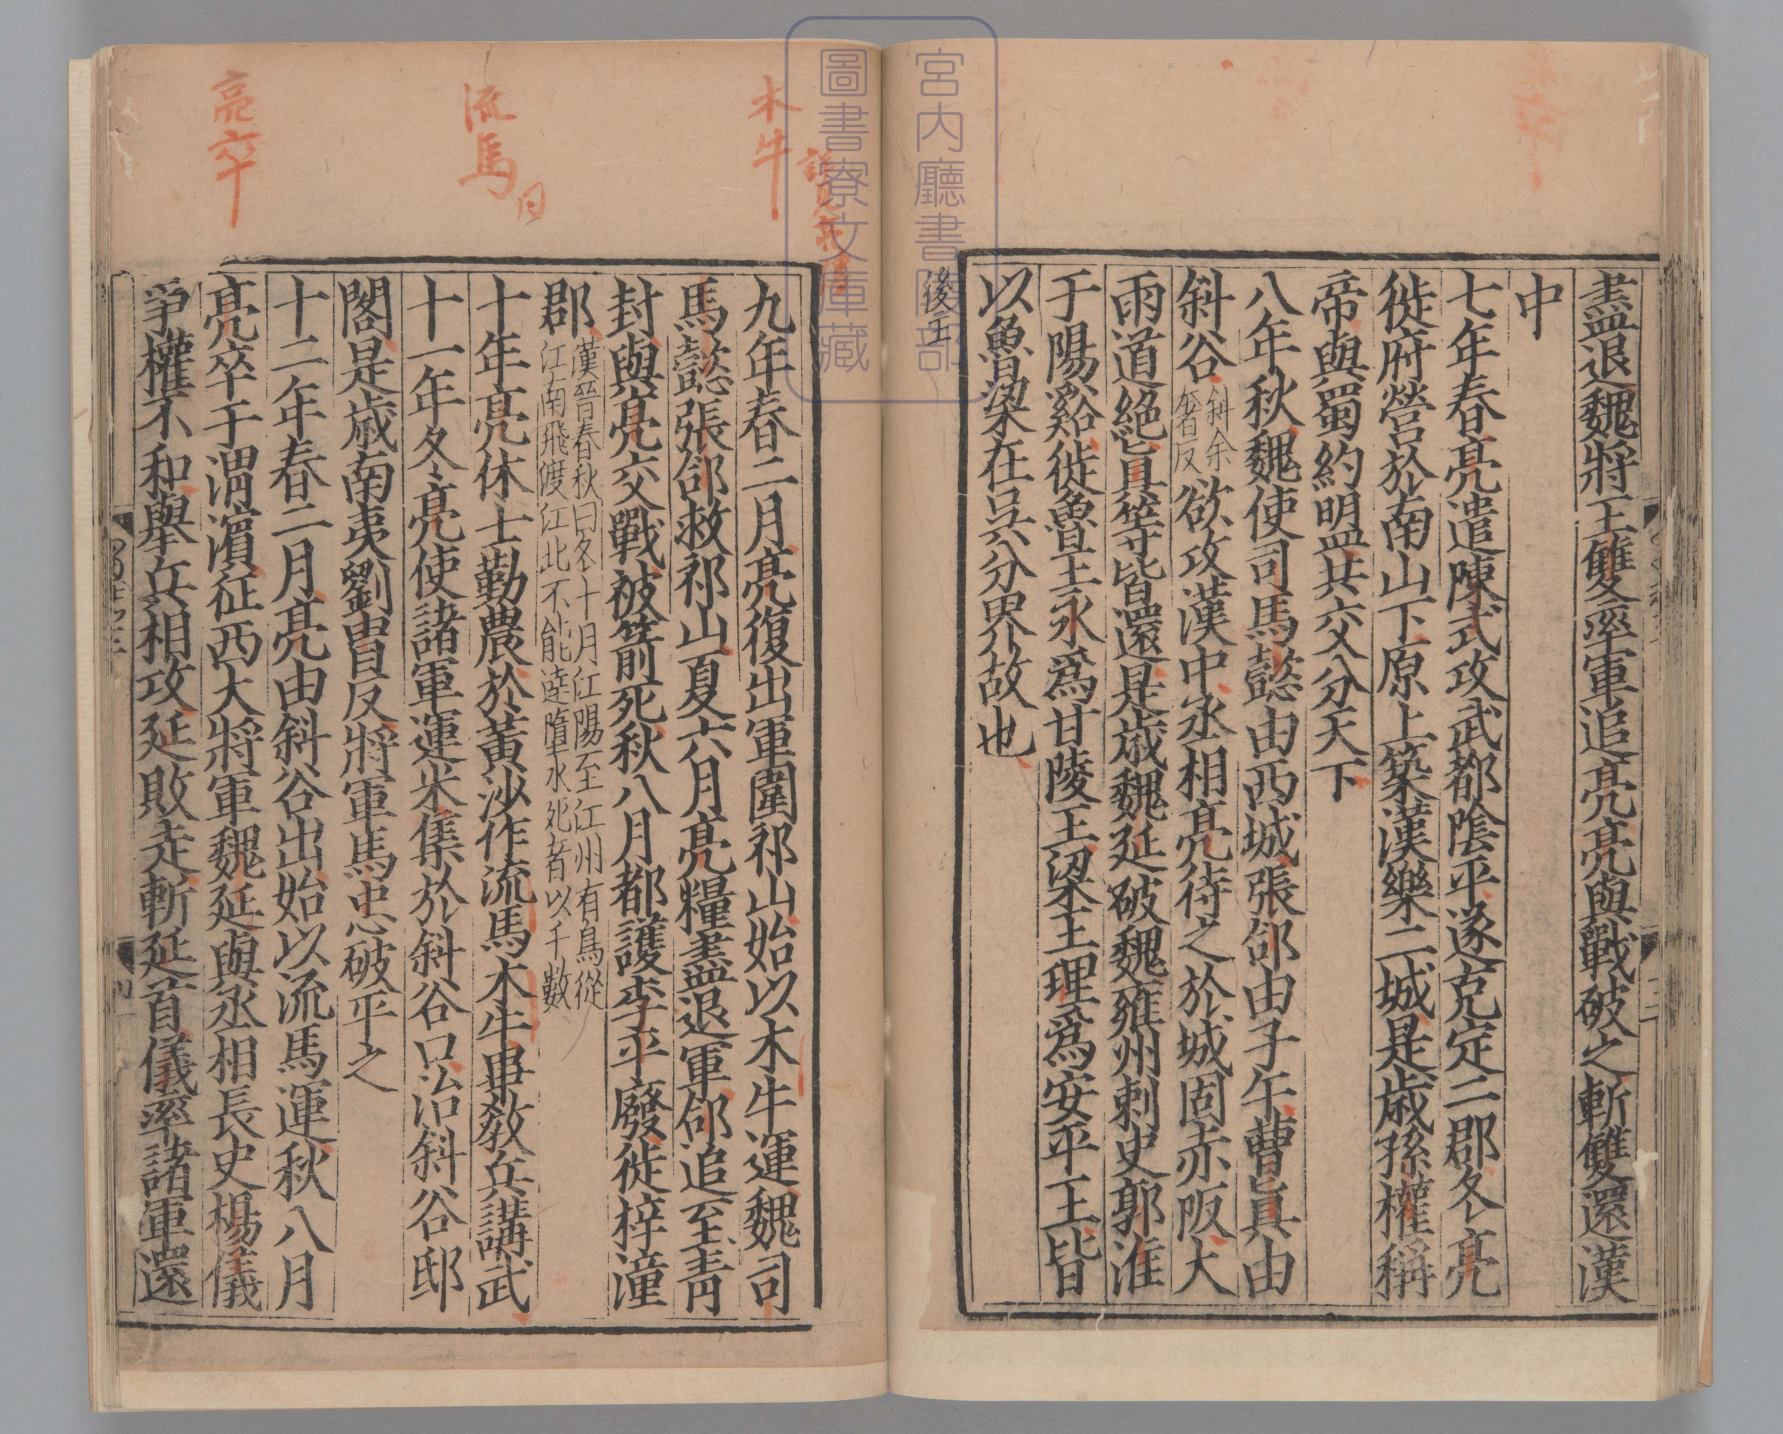 盡退魏將王雙率軍追亮亮與戰破之斬雙還漢
中
七年春亮遣陳式攻武都陰平遂克定二郡冬亮
徙府營於南山下原上築漢樂二城是歲孫權稱
帝與蜀約盟共交分天下
八年秋魏使司馬懿由西城張郃由子午曹真由
斜谷斜余奢反欲攻漢中丞相亮待之於城固赤阪大
雨道絕真等皆還是歲魏延破魏雍州刺史郭淮
于陽谿徙魯王永為甘陵王梁王理為安平王皆
以魯梁在吳分界故也
後主
九年春二月亮復出軍圍祁山始以木牛運魏司
馬懿張郃救祁山夏六月亮糧盡退軍郃追至青
封與亮交戰被箭死秋八月都護李平廢徙梓潼
郡漢晉春秋曰冬十月江陽至江州有鳥從
江南飛渡江北不能達墮水死者以千數
十年亮休士勸農於黃沙作流馬木牛畢教兵講武
十一年冬亮使諸軍運米集於斜谷口治斜谷邸
閣是歲南夷劉冑反將軍馬忠破平之
十二年春二月亮由斜谷出始以流馬運秋八月
亮卒于渭濱征西大將軍魏延與丞相長史楊儀
爭權不和舉兵相攻延敗走斬延首儀率諸軍還
木牛
流馬
亮卒
宮内廳書陵部
圖書寮文庫藏